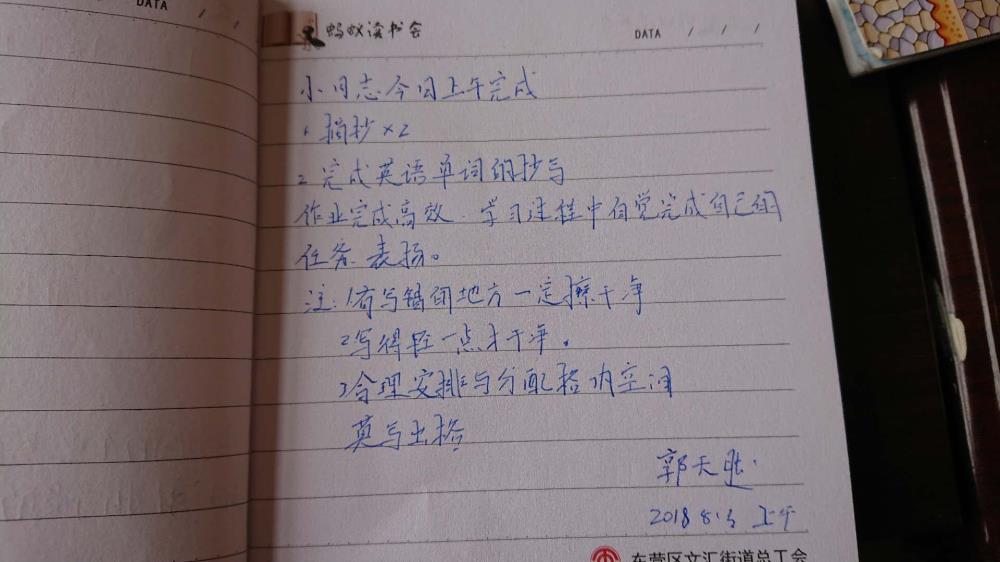 DATA / /
蚂蚁读书会 DATA / / /
小同志今日上午完成
1 摘抄×2
2 完成英语单词的抄写
作业完成高效.学习过程中自觉完成自己的
任务.表扬。
注:1有写错的地方一定擦干净
2写得轻一点才干净。
3合理安排与分配格内空间
莫写出格
郭天
2018 8.5 上午
东营区文汇街道总工会